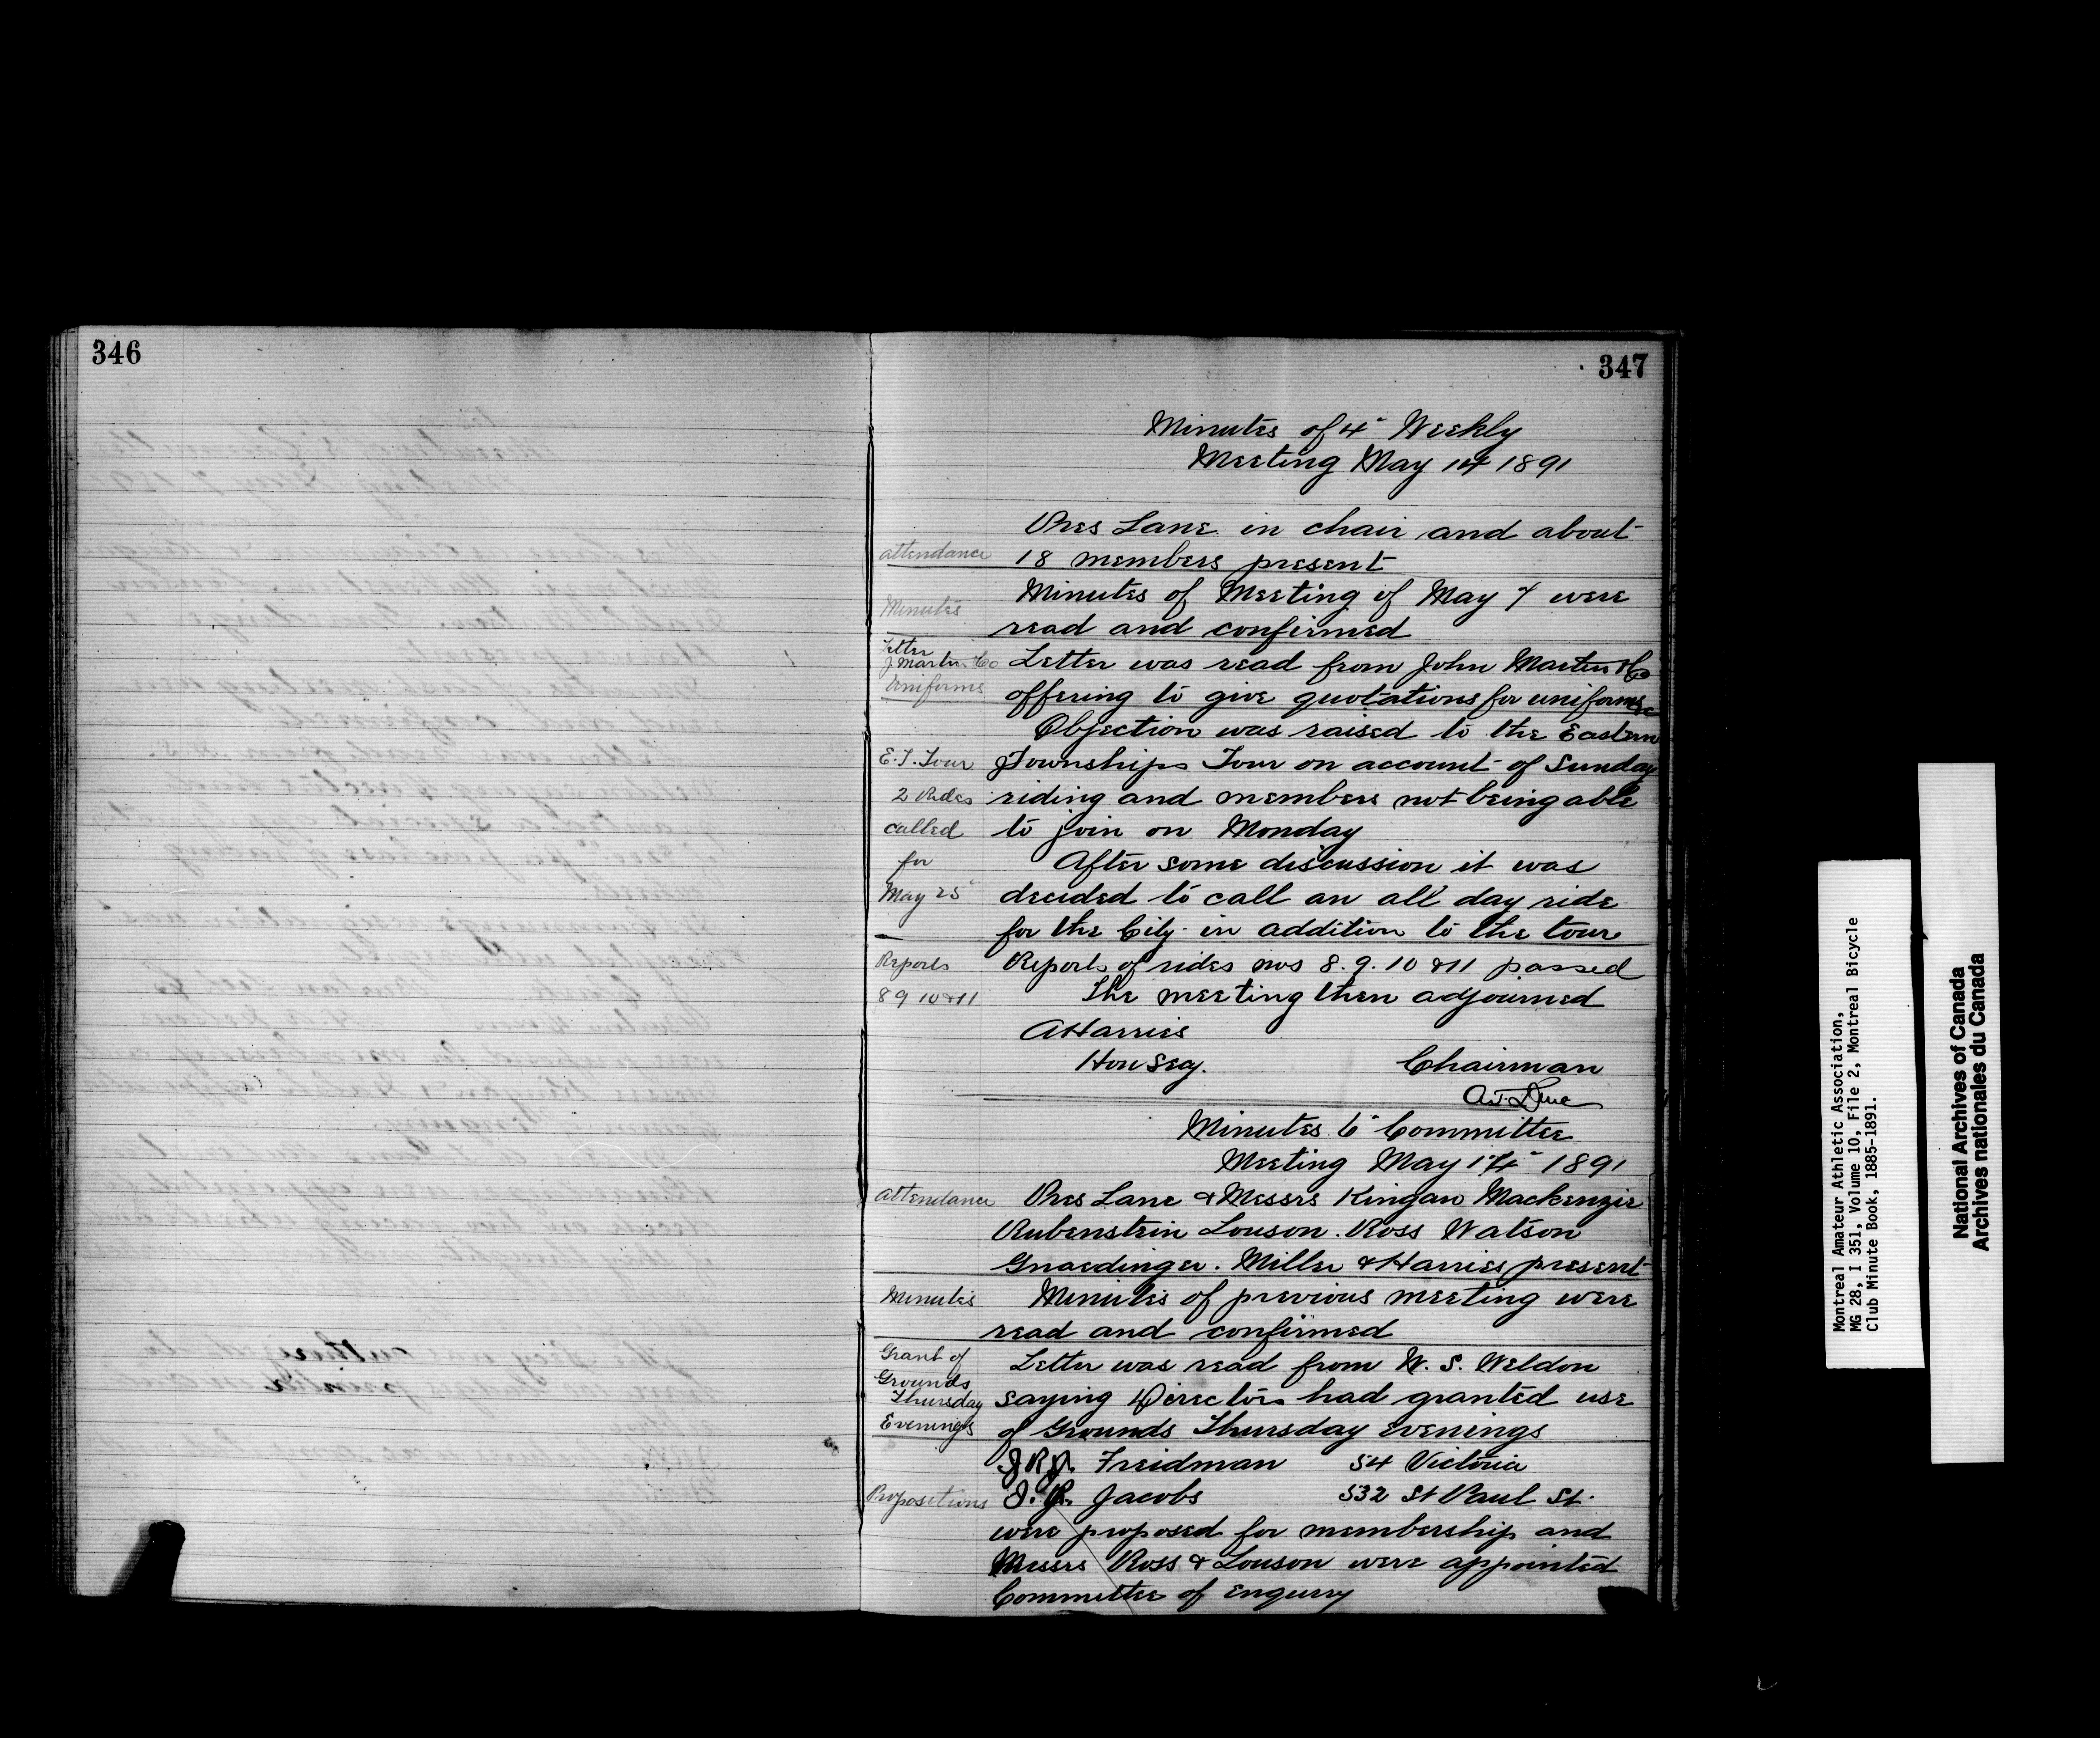 346
347
Minutes of 4" Weekly
Meeting May 14 1891
Pres Lane in chair and about
attendance 18 members present
Minutes Minutes of Meeting of May 7 were
read and confirmed
Letter
J Martin Co Letter was read from John Martin & Co
Uniforms offering to give quotations for uniforms &c
Objection was raised to the Eastern
E.T. Tour Townships Tour on account of Sunday
2 Rides riding and members not being able
called to join on Monday
for After some discussion it was
May 25" decided to call an all day ride
for the City in addition to the tour
Reports Reports of rides nos 8. 9. 10 & 11 passed
8 9 10 & 11 The meeting then adjourned
A Harries
Hon Secy. Chairman
A.T. Lane
Minutes 6" Committee
Meeting May 14" 1891
attendance Pres Lane & Messrs Kingan Mackenzie
Rubenstein Louson. Ross Watson
Gnaedinger. Miller & Harries present
Minutes Minutes of previous meeting were
read and confirmed
Grant of Letter was read from W. S. Weldon
Grounds
Thursday saying Directors had granted use
Evenings of Grounds Thursday evenings
Freidman 54 Victoria
Propositions Jacobs 532 St Paul St.
were proposed for membership and
Messrs Ross & Louson were appointed
Committee of Enquiry
Montreal Amateur Athletic Association,
MG 28, I 351, Volume 10, File 2, Montreal Bicycle
Club Minute Book, 1885-1891.
National Archives of Canada
Archives nationales du Canada